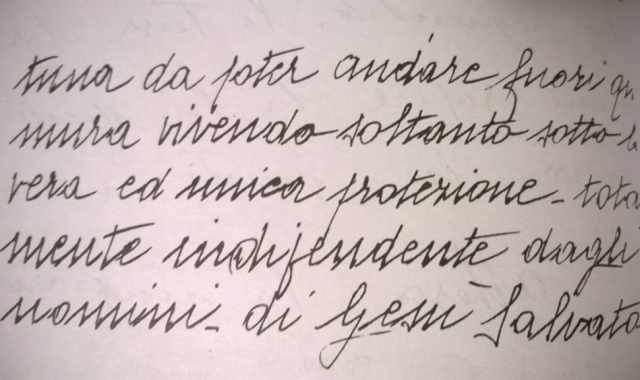 tuna da poter andare fuori qu
mura vivendo soltanto sotto la
vera ed unica protezione - tota
mente indipendente dagli
uomini - di Gesù Salvato